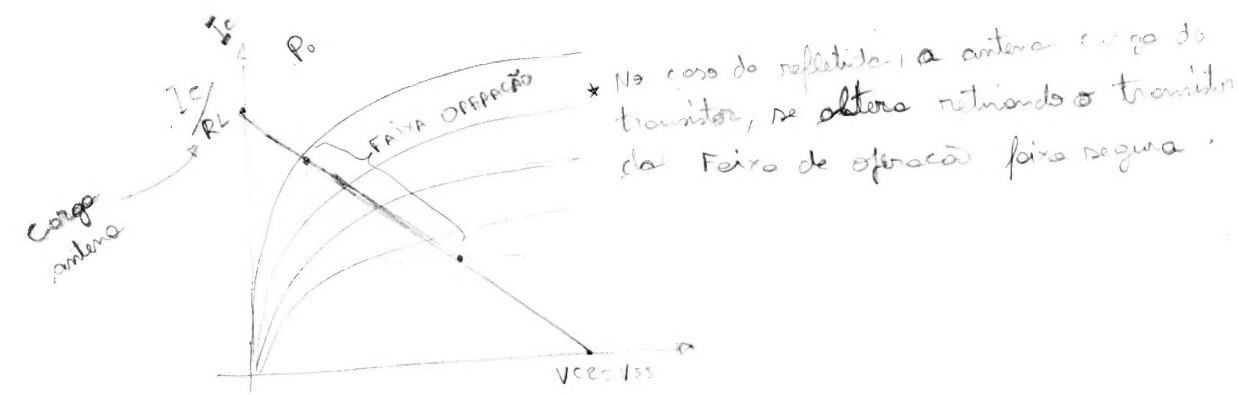 Ic
Po
Ic/
RL
Carga
antena
FAIXA OPERAÇÃO
* No caso da refletida, a antena carga do
transistor, se altera retirando o transistor
da Faixa de operação faixa segura.